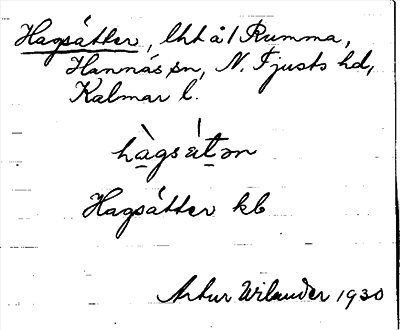 Hagsätter, lht å 1 Rumma,
Hannäs sn, N. Tjusts hd,
Kalmar l.
hàgsátən
Hagsätter kb
Artur Wilander 1930